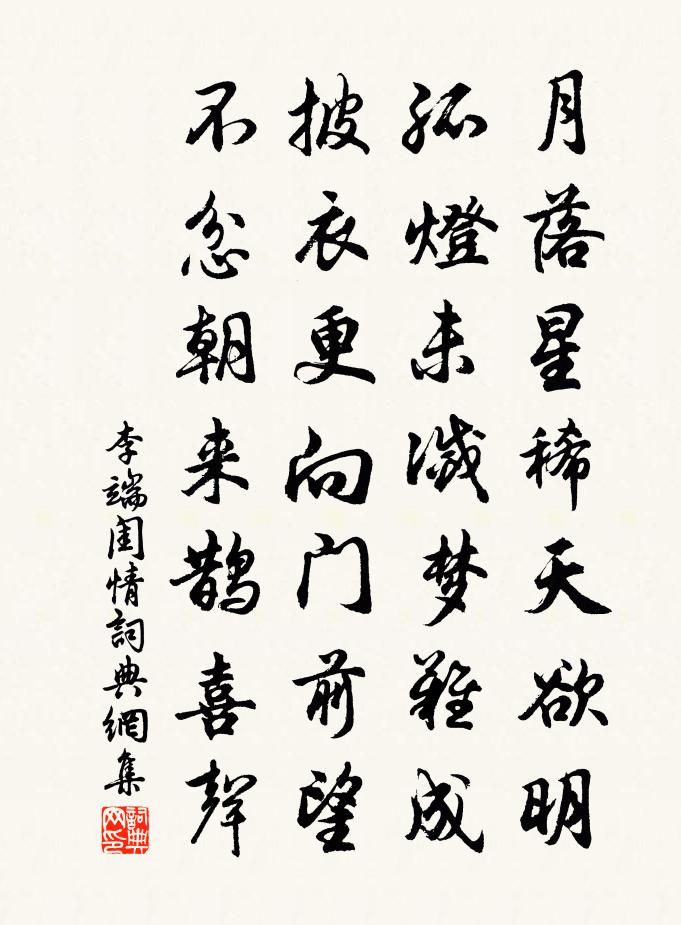 月落星稀天欲明
孤燈未滅梦難成
披衣更向门前望
不忿朝来鹊喜聲
李端閨情詞典網集
詞典网印